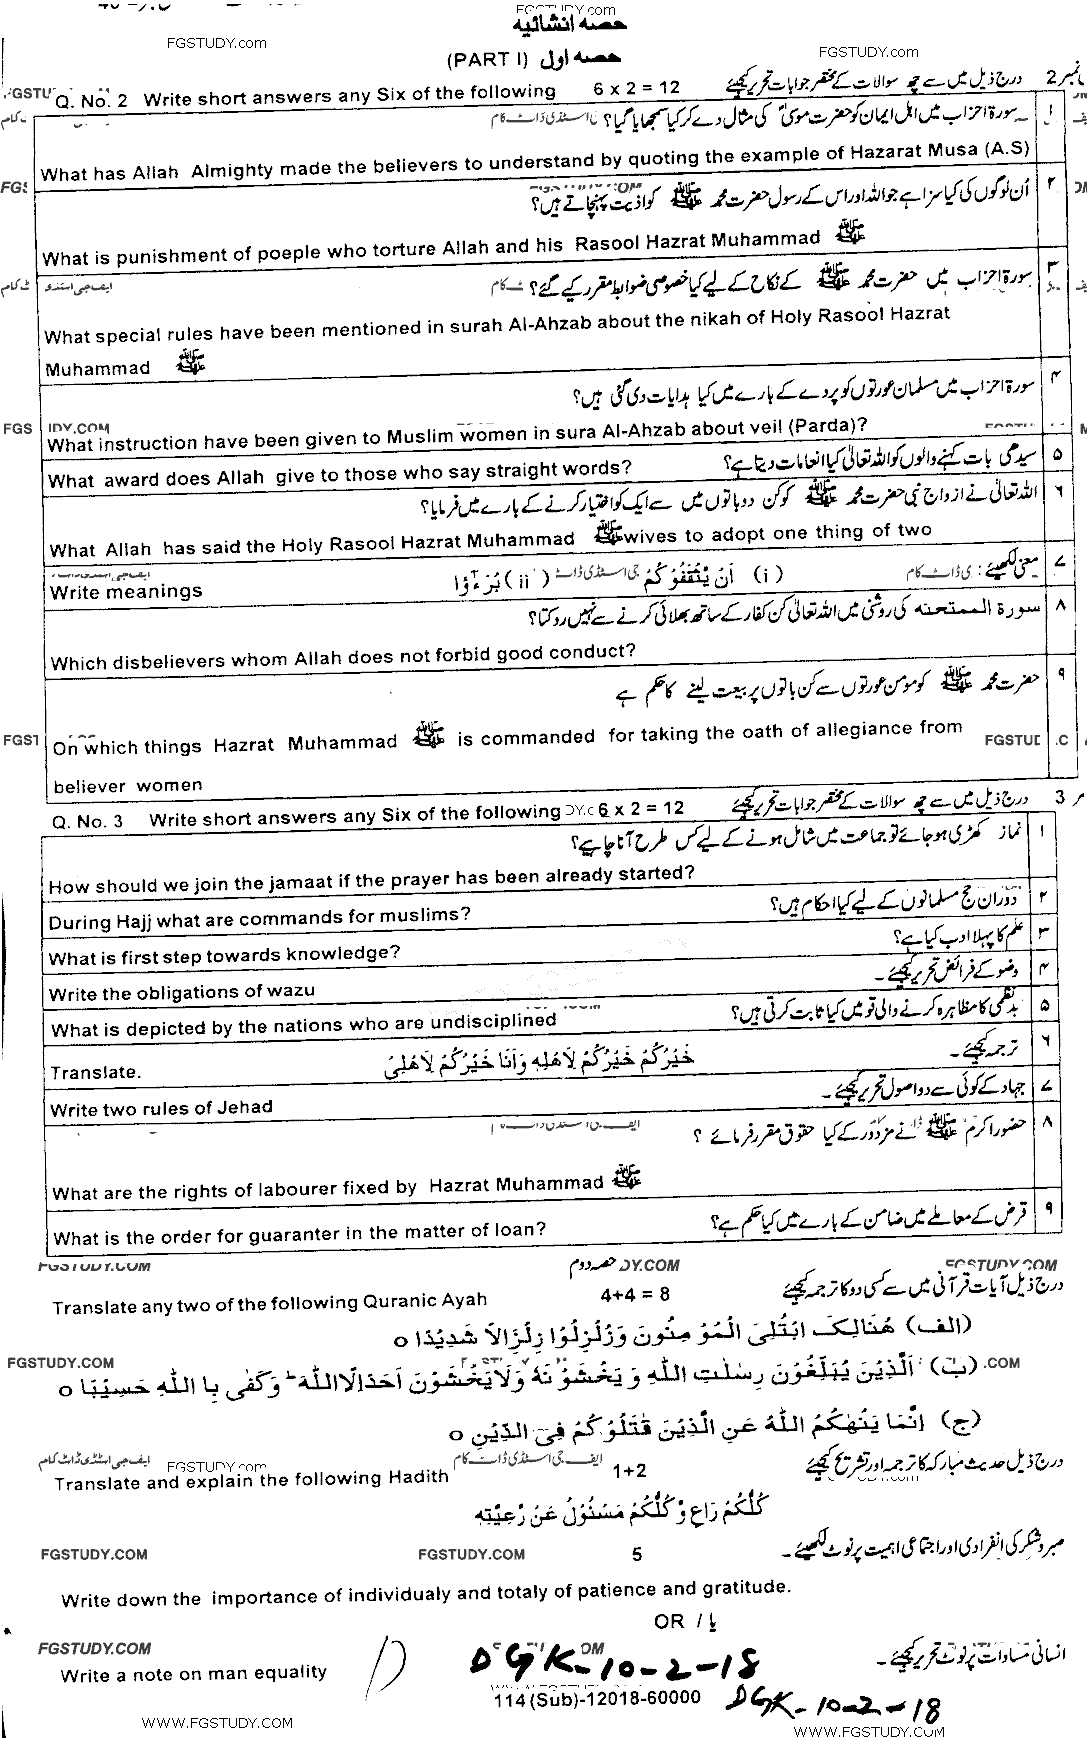 FGSTUDY.com
حصہ انشائیہ
FGSTUDY.com
(PART I) حصہ اول
FGSTUDY.com
Q. No. 2 Write short answers any Six of the following 6 x 2 = 12 درج ذیل میں سے چھ سوالات کے مختصر جوابات تحریر کیجئیے 2
سورۃ احزاب میں اہل ایمان کو حضرت موسیٰ کی مثال دے کر کیا سمجھایا گیا؟
What has Allah Almighty made the believers to understand by quoting the example of Hazarat Musa (A.S)
۲ اُن لوگوں کی کیا سزا ہے جو اللہ اور اس کے رسول حضرت محمد ﷺ کو اذیت پہنچاتے ہیں؟
What is punishment of poeple who torture Allah and his Rasool Hazrat Muhammad ﷺ
۳ سورۃ احزاب میں حضرت محمد ﷺ کے نکاح کے لیے کیا خصوصی ضوابط مقرر کیے گئے؟
What special rules have been mentioned in surah Al-Ahzab about the nikah of Holy Rasool Hazrat
Muhammad ﷺ
۴ سورۃ احزاب میں مسلمان عورتوں کو پردے کے بارے میں کیا ہدایات دی گئی ہیں؟
What instruction have been given to Muslim women in sura Al-Ahzab about veil (Parda)?
۵ سیدھی بات کہنے والوں کو اللہ تعالیٰ کیا انعامات دیتا ہے؟
What award does Allah give to those who say straight words?
۶ اللہ تعالیٰ نے ازواج نبی حضرت محمد ﷺ کو کن دو باتوں میں سے ایک کو اختیار کرنے کے بارے میں فرمایا؟
What Allah has said the Holy Rasool Hazrat Muhammad ﷺ wives to adopt one thing of two
۷ معنی لکھیئے: (i) اَنْ يَّثْقَفُوْكُمْ (ii) بُرَءٰٓؤُا
Write meanings
۸ سورۃ الممتحنہ کی روشنی میں اللہ تعالیٰ کن کفار کے ساتھ بھلائی کرنے سے نہیں روکتا؟
Which disbelievers whom Allah does not forbid good conduct?
۹ حضرت محمد ﷺ کو مومن عورتوں سے کن باتوں پر بیعت لینے کا حکم ہے
On which things Hazrat Muhammad ﷺ is commanded for taking the oath of allegiance from
believer women
Q. No. 3 Write short answers any Six of the following 6 x 2 = 12 درج ذیل میں سے چھ سوالات کے مختصر جوابات تحریر کیجئیے 3
۱ نماز کھڑی ہو جائے تو جماعت میں شامل ہونے کے لیے کس طرح آنا چاہیے؟
How should we join the jamaat if the prayer has been already started?
۲ دوران حج مسلمانوں کے لیے کیا احکام ہیں؟
During Hajj what are commands for muslims?
۳ علم کا پہلا ادب کیا ہے؟
What is first step towards knowledge?
۴ وضو کے فرائض تحریر کیجئیے۔
Write the obligations of wazu
۵ بدنظمی کا مظاہرہ کرنے والی قومیں کیا ثابت کرتی ہیں؟
What is depicted by the nations who are undisciplined
۶ ترجمہ کیجئیے۔
Translate. خَيْرُكُمْ خَيْرُكُمْ لِاَهْلِهٖ وَاَنَا خَيْرُكُمْ لِاَهْلِيْ
۷ جہاد کے کوئی سے دو اصول تحریر کیجئیے۔
Write two rules of Jehad
۸ حضور اکرم ﷺ نے مزدور کے کیا حقوق مقرر فرمائے ؟
What are the rights of labourer fixed by Hazrat Muhammad ﷺ
۹ قرض کے معاملے میں ضامن کے بارے میں کیا حکم ہے؟
What is the order for guaranter in the matter of loan?
FGSTUDY.COM حصہ دوم DY.COM FGSTUDY.COM
Translate any two of the following Quranic Ayah 4+4 = 8 درج ذیل آیات قرآنی میں سے کسی دو کا ترجمہ کیجئیے
(الف) هُنَالِكَ ابْتُلِيَ الْمُؤْمِنُوْنَ وَزُلْزِلُوْا زِلْزَالًا شَدِيْدًا o
FGSTUDY.COM
(ب) اَلَّذِيْنَ يُبَلِّغُوْنَ رِسٰلٰتِ اللّٰهِ وَيَخْشَوْنَهٗ وَلَا يَخْشَوْنَ اَحَدًا اِلَّا اللّٰهَ وَكَفٰى بِاللّٰهِ حَسِيْبًا o
(ج) اِنَّمَا يَنْهٰكُمُ اللّٰهُ عَنِ الَّذِيْنَ قٰتَلُوْكُمْ فِى الدِّيْنِ o
ایف جی اسٹڈی ڈاٹ کام FGSTUDY.com
Translate and explain the following Hadith 1+2 درج ذیل حدیث مبارکہ کا ترجمہ اور تشریح کیجئیے
كُلُّكُمْ رَاعٍ وَّكُلُّكُمْ مَسْئُوْلٌ عَنْ رَعِيَّتِهٖ
FGSTUDY.COM FGSTUDY.COM 5 صبر و شکر کی انفرادی اور اجتماعی اہمیت پر نوٹ لکھیئے۔
Write down the importance of individualy and totaly of patience and gratitude.
OR / یا
FGSTUDY.COM
Write a note on man equality انسانی مساوات پر نوٹ تحریر کیجئیے۔
DGK-10-2-18
114(Sub)-12018-60000 DGK-10-2-18
WWW.FGSTUDY.COM WWW.FGSTUDY.COM